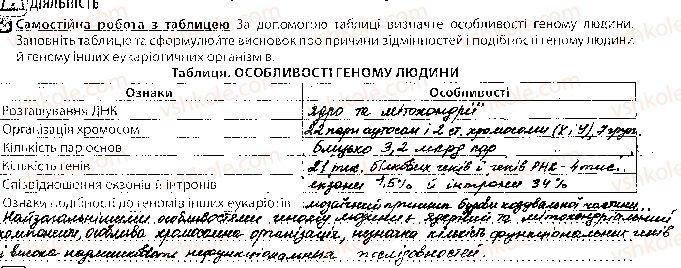 ДІЯЛЬНІСТЬ
Самостійна робота з таблицею За допомогою таблиці визначте особливості геному людини.
Заповніть таблицю та сформулюйте висновок про причини відмінностей і подібності геному людини
й геному інших еукаріотичних організмів.
Таблиця. ОСОБЛИВОСТІ ГЕНОМУ ЛЮДИНИ
Ознаки Особливості
Розташування ДНК ядро та мітохондрії
Організація хромосом 22 пари аутосом і 2 ст. хромосоми (X і У), 7 груп
Кількість пар основ близько 3,2 млрд пар
Кількість генів 21 тис. білкових генів й генів РНК - 4 тис.
Співвідношення екзонів й інтронів екзони 1,5% й інтрони 34%
Ознаки подібності до геномів інших еукаріотів мозаїчний принцип будови кодувальної частини
Найзагальнішими особливостями геному людини є ядерний та мітохондріальний
компоненти, особлива хромосомна організація, незначна кількість функціональних генів
і висока нефункціональних послідовностей.